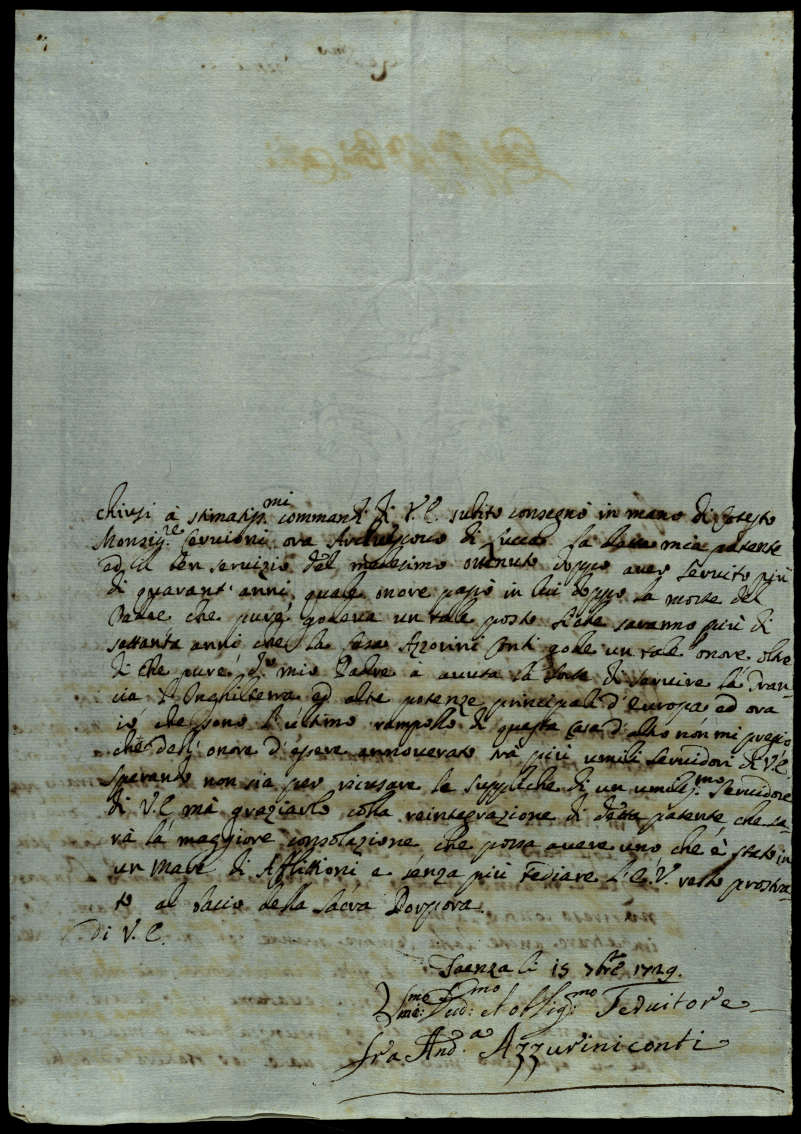 chinsi à stimatiss.mi command.i di V.E. subito consegnò in mano di Cotesto
Monsig.re Cervioni ora Arcivescovo di Lucca la detta mia patente
ed il ben servizio del medesimo ottenuto doppo aver servito più
di quarant' anni, quale onore passò in lui doppo la morte del
Padre che pure godeva un tale posto
settanta anni che la Casa Azzorini Conti gode un tale onore oltre
di che pure il q.m mio Padre a avuta la sorte di servire la Fran-
cia l'Inghilterra ed altre potenze principali d'Europa ed ora
io che sono l'ultimo rampollo di questa Casa d'altro non mi pregio
che dell' onore d'essere annoverato trà più umili servidori di V.E.
sperando non sia per ricusare le suppliche di un umiliss.mo servidore
di V.E. mà graziarlo colla reintegrazione di detta patente che sa-
rà la maggiore consolazione che possa avere uno che è stato in
un mare di Afflittioni e senza più tediare l'E.V. resto prostra-
to al bacio della Sacra Porpora.
Di V.E.
Faenza li 15 7bre 1729.
Dev.mo ed oblig.mo Servitore
Fra. And.a Azzurini Conti